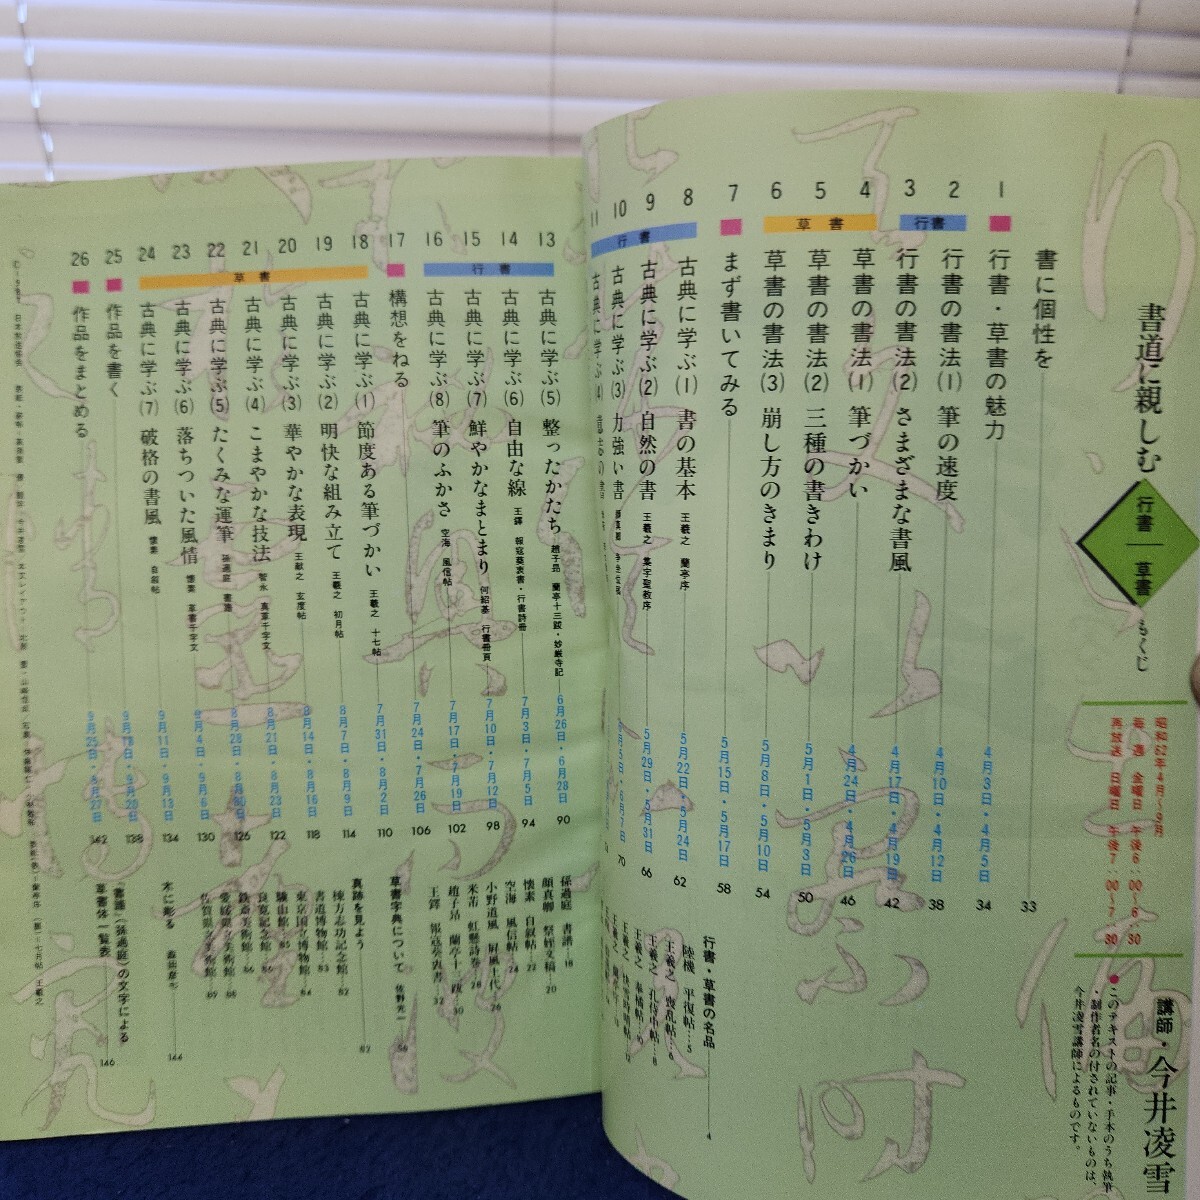 書道に親しむ
行書
草書
もくじ
昭和62年4月〜9月
毎週 金曜日 午後6:00〜6:30
再放送 日曜日 午後7:00〜7:30
講師・今井凌雪
●このテキストの記事・手本のうち執筆
・制作者名の付されていないものは、
今井凌雪講師によるものです。
書に個性を 33
1 行書・草書の魅力 4月3日・4月5日 34
行書
2 行書の書法(1) 筆の速度 4月10日・4月12日 38
3 行書の書法(2) さまざまな書風 4月17日・4月19日 42
草書
4 草書の書法(1) 筆づかい 4月24日・4月26日 46
5 草書の書法(2) 三種の書きわけ 5月1日・5月3日 50
6 草書の書法(3) 崩し方のきまり 5月8日・5月10日 54
7 まず書いてみる 5月15日・5月17日 58
行書
8 古典に学ぶ(1) 書の基本 王羲之 蘭亭序 5月22日・5月24日 62
9 古典に学ぶ(2) 自然の書 王羲之 集字聖教序 5月29日・5月31日 66
10 古典に学ぶ(3) 力強い書 6月5日・6月7日 70
11 古典に学ぶ(4)
行書・草書の名品 4
陸機 平復帖…5
王羲之 喪乱帖…6
王羲之 孔侍中帖…8
王羲之 奉橘帖…10
王羲之 快雪時晴帖…12
行書
13 古典に学ぶ(5) 整ったかたち 趙子昂 蘭亭十三跋・妙厳寺記 6月26日・6月28日 90
14 古典に学ぶ(6) 自由な線 王鐸 報寇葵衷書・行書詩冊 7月3日・7月5日 94
15 古典に学ぶ(7) 鮮やかなまとまり 何紹基 行書冊頁 7月10日・7月12日 98
16 古典に学ぶ(8) 筆のふかさ 空海 風信帖 7月17日・7月19日 102
17 構想をねる 7月24日・7月26日 106
草書
18 古典に学ぶ(1) 節度ある筆づかい 王羲之 十七帖 7月31日・8月2日 110
19 古典に学ぶ(2) 明快な組み立て 王羲之 初月帖 8月7日・8月9日 114
20 古典に学ぶ(3) 華やかな表現 王献之 玄度帖 8月14日・8月16日 118
21 古典に学ぶ(4) こまやかな技法 智永 真草千字文 8月21日・8月23日 122
22 古典に学ぶ(5) たくみな運筆 孫過庭 書譜 8月28日・8月30日 126
23 古典に学ぶ(6) 落ちついた風情 懐素 草書千字文 9月4日・9月6日 130
24 古典に学ぶ(7) 破格の書風 懐素 自叙帖 9月11日・9月13日 134
25 作品を書く 9月18日・9月20日 138
26 作品をまとめる 9月25日・9月27日 142
孫過庭 書譜…18
顔真卿 祭姪文稿…20
懐素 自叙帖…22
空海 風信帖…24
小野道風 屏風土代…26
米芾 虹県詩巻…28
趙子昂 蘭亭十三跋…30
王鐸 報寇葵衷書…32
草書字典について 佐野光一 56
真跡を見よう 82
棟方志功記念館…82
書道博物館…83
東京国立博物館…84
駿山館…85
良寛記念館…86
鉄斎美術館…86
愛媛県立美術館…88
佐賀県立美術館…89
木に彫る 144
「書譜」(孫過庭)の文字による
草書体一覧表 146